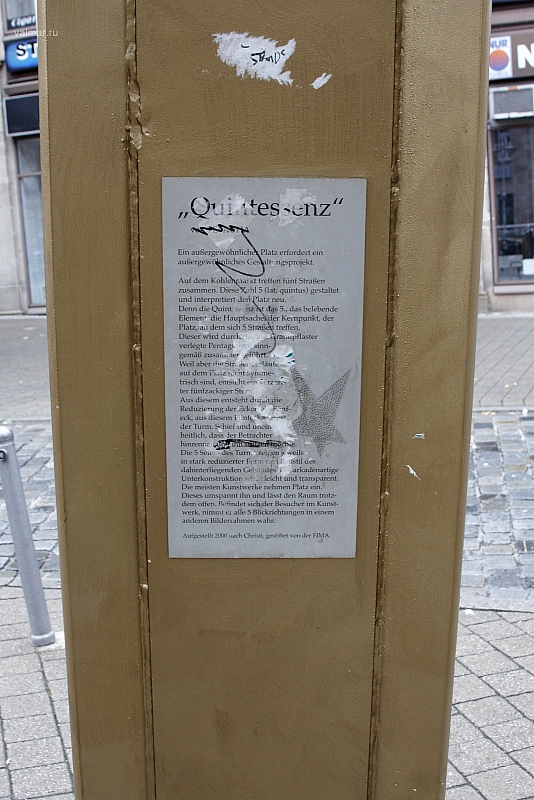 valmar.ru
ST
NUR
N
„Quintessenz“
Ein außergewöhnlicher Platz erfordert ein
außergewöhnliches Gestaltungsprojekt.
Auf dem Kohlenmarkt treffen fünf Straßen
zusammen. Diese Zahl 5 (lat. quintus) gestaltet
und interpretiert den Platz neu.
Denn die Quintessenz ist das 5., das belebende
Element, die Hauptsache, der Kernpunkt, der
Platz, an dem sich 5 Straßen treffen.
Dieser wird durch Granitpflaster
verlegte sinn-
gemäß zusammengeführt.
Weil aber die Straßenverläufe
auf dem Platz nicht symme-
trisch sind, entsteht ein verzerr-
ter fünfzackiger Stern.
Aus diesem entsteht durch die
Reduzierung der Ecken ein Fünf-
eck, aus diesem
der Turm. Schief und unein-
heitlich, dass der Betrachter
hinrennen
Die 5 Seiten des Turms zeigen jeweils
in stark reduzierter Form den Baustil des
dahinterliegenden Gebäudes. Die arkadenartige
Unterkonstruktion wirkt leicht und transparent.
Die meisten Kunstwerke nehmen Platz ein.
Dieses umspannt ihn und lässt den Raum trotz-
dem offen. Befindet sich der Besucher im Kunst-
werk, nimmt er alle 5 Blickrichtungen in einem
anderen Bilderrahmen wahr.
Aufgestellt 2000 nach Christi, gestiftet von der FIMA.